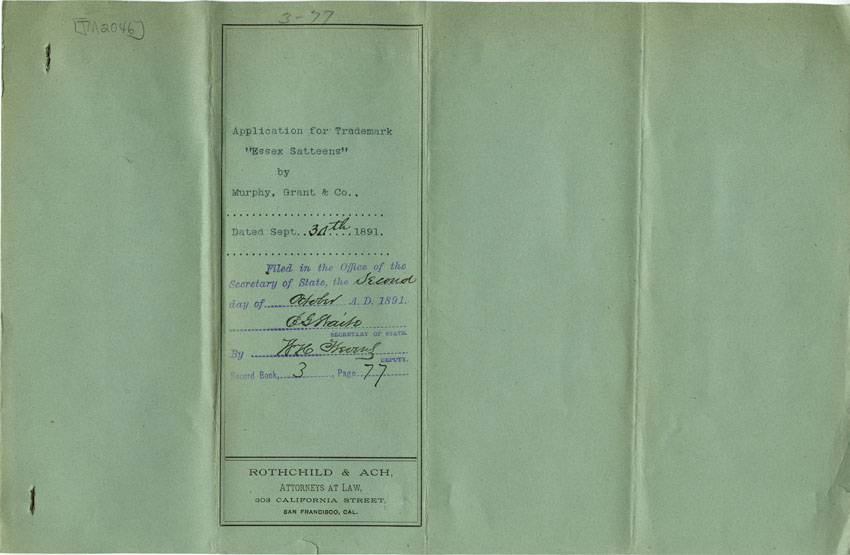 [TM2046]
3-77
Application for Trademark
"Essex Satteens"
by
Murphy, Grant & Co.,
Dated Sept. 30th 1891.
Filed in the Office of the
Secretary of State, the Second
day of October A.D. 1891.
E G Waite
SECRETARY OF STATE.
By W H Stevens
DEPUTY.
Record Book, 3, Page 77
ROTHCHILD & ACH,
ATTORNEYS AT LAW,
303 CALIFORNIA STREET,
SAN FRANCISCO, CAL.